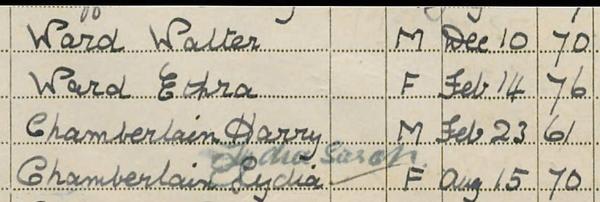 Ward Walter M Dec 10 70
Ward Ethra F Feb 14 76
Chamberlain Harry M Feb 23 61
Lydia Sarah
Chamberlain Lydia F Aug 15 70